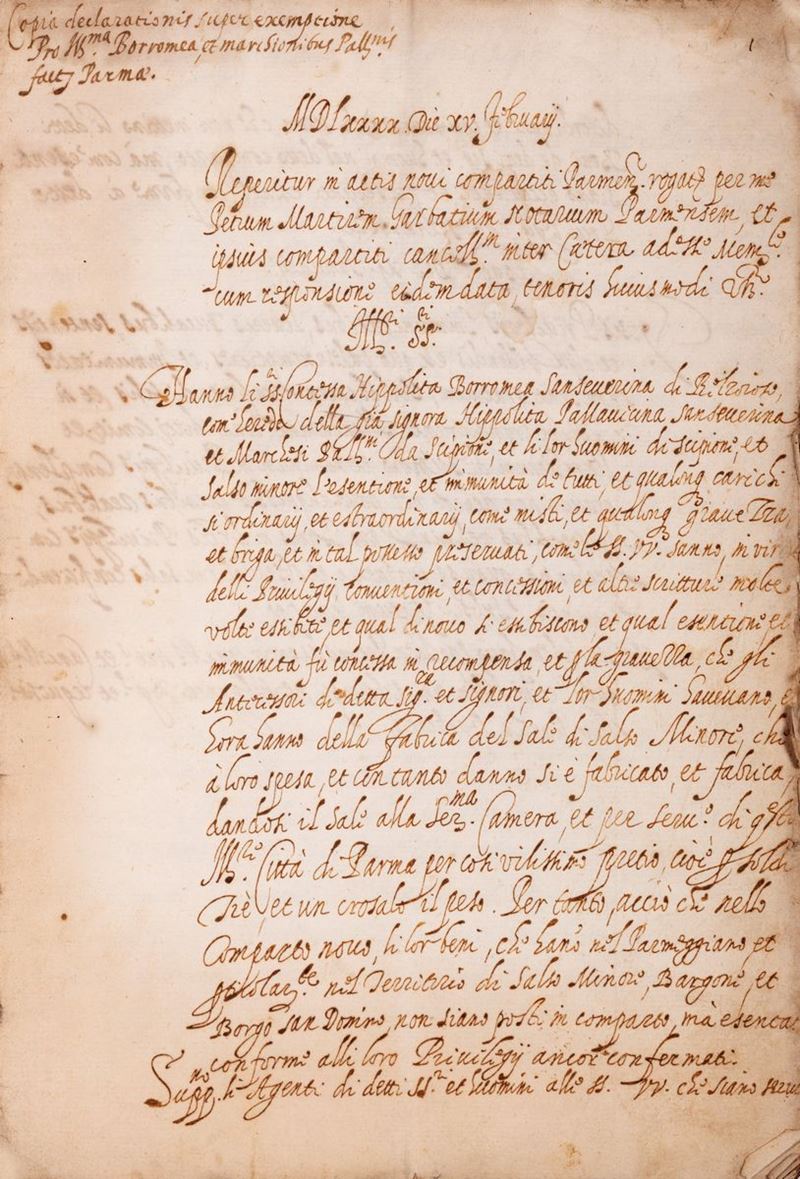 Copia declarationis super exemptione
Pro Ill.ma Borromea, et marchionibus Pall.nis
fact Parmæ.
1
MDLxxxx Die xv. februarij.
Reperitur in actis noui compartiti Parmen. rogat per me
Petrum Martirem Garbatium Notarium Parmensem, et
ipsius compartiti cancell.m inter Cætera adesse Mem.le
cum responsione eidem data, tenoris huiusmodi Vt.
Ill.ri SS.ri
Hanno li SS.ri Contessa Hippolita Borromea Sanseuerina di
com'herede della già signora Hippolita Pallauicina Sanseuerina
et Marchesi Pall.ni da Scipione, et li lor huomini di Scipione, et
Salso minore l'esentione, et immunità de tutti, et qualonq carichi
si ordinarij, et estraordinarij, come misti, et qualonq graueZza,
et briga, et in tal possesso preseruati, come le SS. VV. sanno, in
delli Priuilegij conuentioni, et concessioni, et altre scritture molte
volte essibite, et qual di nouo si essibiscono, et qual esentione, et
immunità fù concessa in recompensa, et p la graueZza, che gli
Antecessori di detta Sig.ra et Signori, et lor huomini haueuano, e
hora hanno della fabrica del Sale di Salso Minore, che
à loro spesa, et con tanto danno si è fabricato, et fabrica,
dandosi il sale alla Ser.ma Camera, et per seru.o di q.sta
M.ce Città di Parma per cosi vilissimo pretio, cioè p soldi
Trè, et un crosato il peso. Per tanto, acciò che nello
Comparto nouo, li lor beni, che hano nel Parmeggiano, et
pticolar.te nel Territorio di Salso Minore, Bargone, et
Borgo San Donino, non siano posti in comparto, mà
conforme alli loro Priuilegij ancor confermati.
Supp.no li Agenti di detti SS.ri et huomini alle SS. VV. che siano